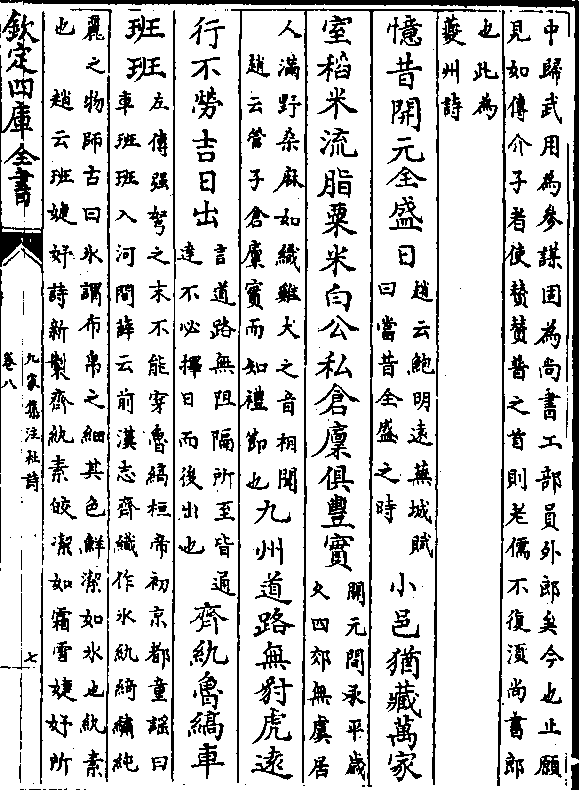 中歸武用為參謀固為尚書工部員外郎矣今也止願
見如傅介子者使賛賛普之首則老儒不復須尚書郎
也此為
夔州詩
憶昔開元全盛日
趙云鮑明遠蕪城賦
曰當昔全盛之時
小邑猶藏萬家
室稻米流脂粟米白公私倉廩俱豐實
開元間承平歲
久四郊無虞居
人滿野桑麻如織雞犬之音相聞
趙云管子倉廩實而如禮節也
九州道路無豺虎遠
行不勞吉日出
言道路無阻隔所至皆通
達不必擇日而後出也
齊紈魯縞車
班班
左傳强弩之末不能穿魯縞桓帝初京都童謡曰
車班班入河間薛云前漢志齊織作氷紈綺繡純
麗之物師古曰氷謂布帛之細其色鮮潔如氷也紈素
也 趙云班婕妤詩新製齊紈素皎潔如霜雪婕妤所
欽定四庫全書
九家集注杜詩
卷八
七